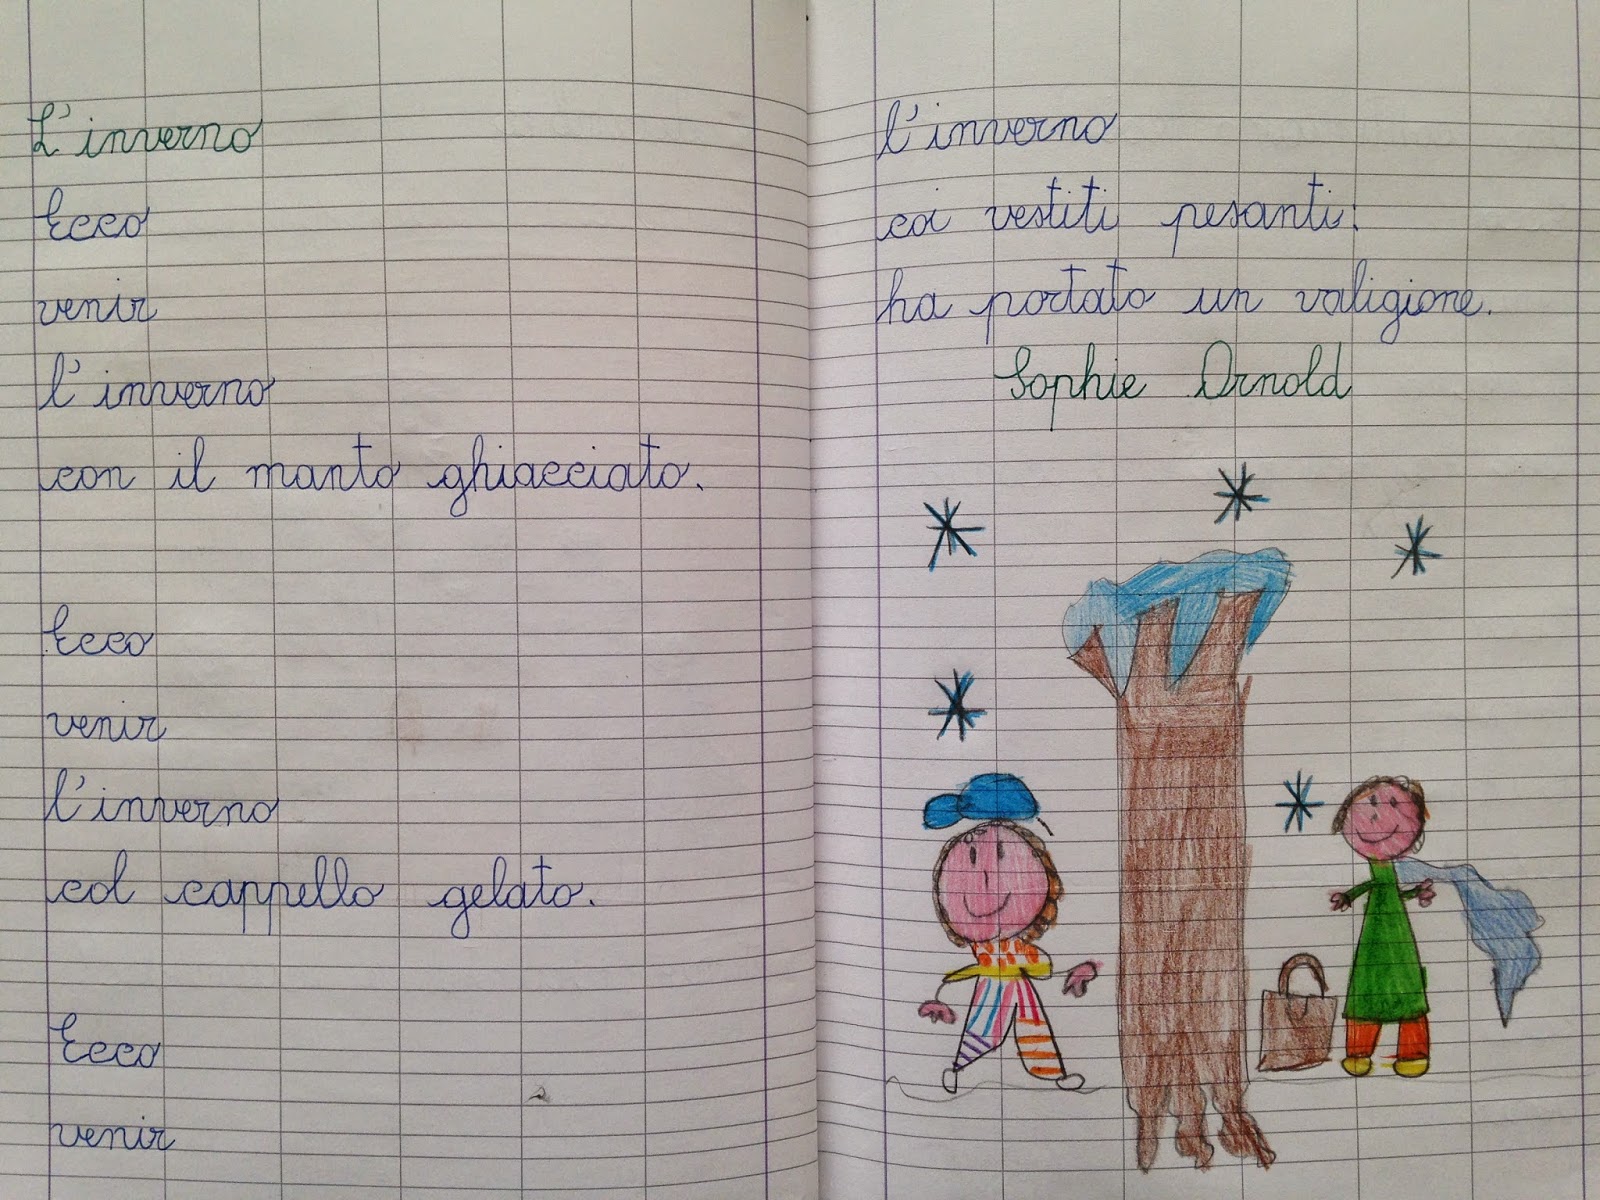 L'inverno
Ecco
venir
l'inverno
con il manto ghiacciato.
Ecco
venir
l'inverno
col cappello gelato.
Ecco
venir
l'inverno
coi vestiti pesanti:
ha portato un valigione.
Sophie Arnold